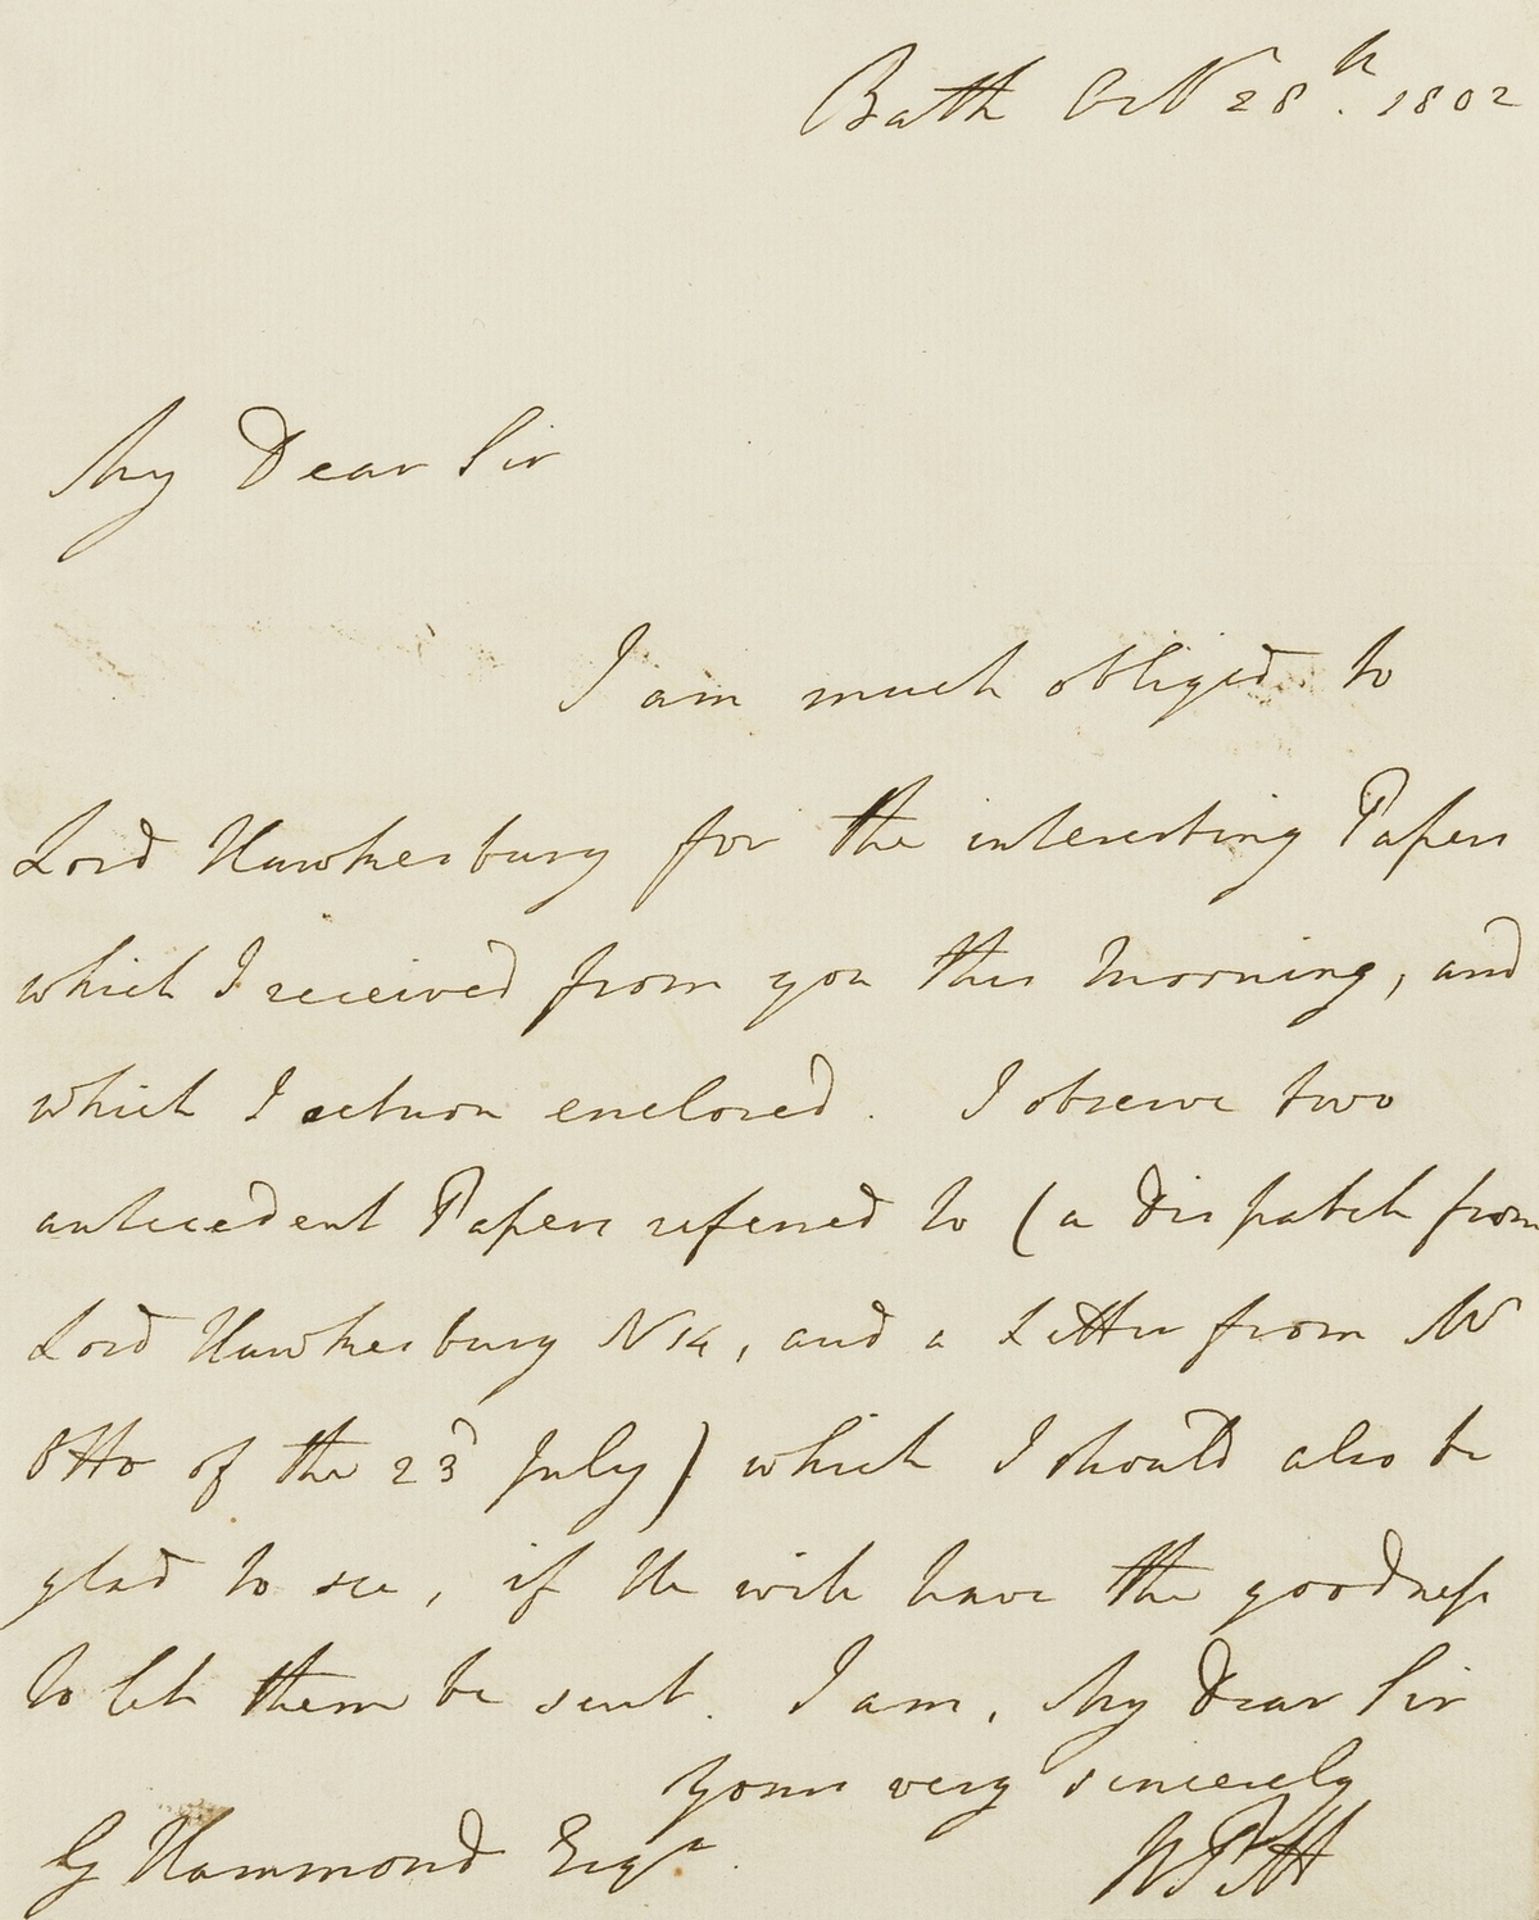 Bath Octr 28th. 1802
My Dear Sir
I am much obliged to
Lord Hawkesbury for the interesting Papers
which I received from you this Morning, and
which I return enclosed. I observe two
antecedent Papers referred to (a Dispatch from
Lord Hawkesbury N 14, and a Letter from Mr
Otto of the 23d July) which I should also be
glad to see, if He will have the goodness
to let them be sent. I am, My Dear Sir
Yours very sincerely
W Pitt
G Hammond Esqr.